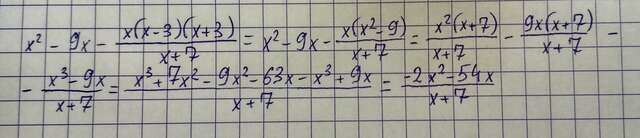 x² - 9x - x(x-3)(x+3)/x+7 = x² - 9x - x(x²-9)/x+7 = x²(x+7)/x+7 - 9x(x+7)/x+7 -
- x³-9x/x+7 = x³+7x²-9x²-63x-x³+9x/x+7 = -2x²-54x/x+7